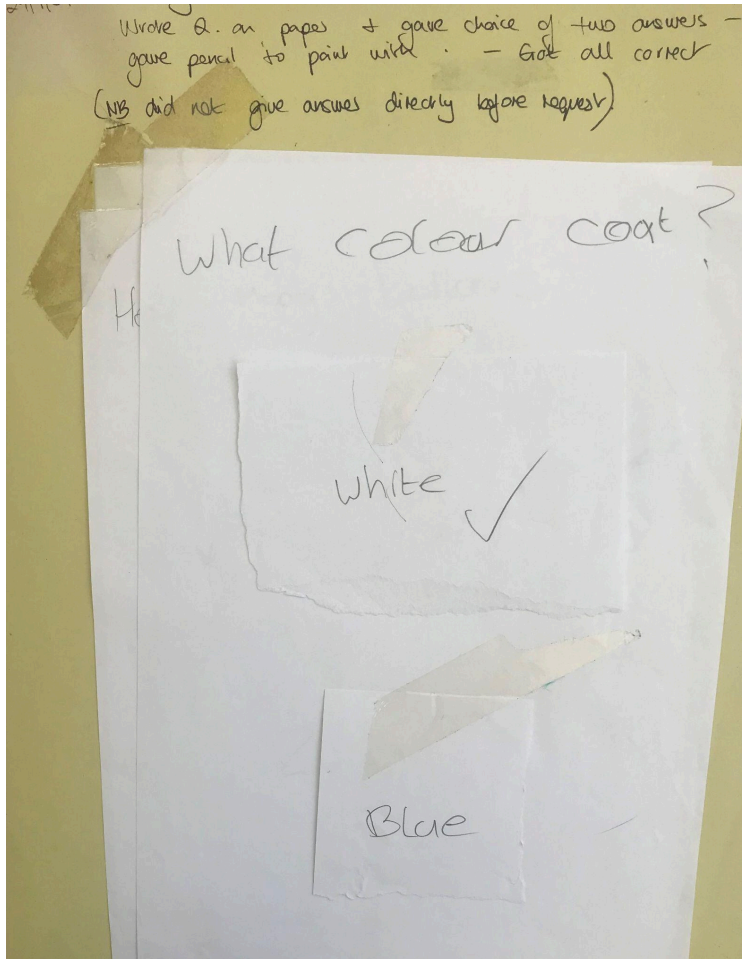 Wrote Q. on paper + gave choice of two answers –
gave pencil to point with. – Got all correct
(NB did not give answer directly before request)
What colour coat?
White ✓
Blue